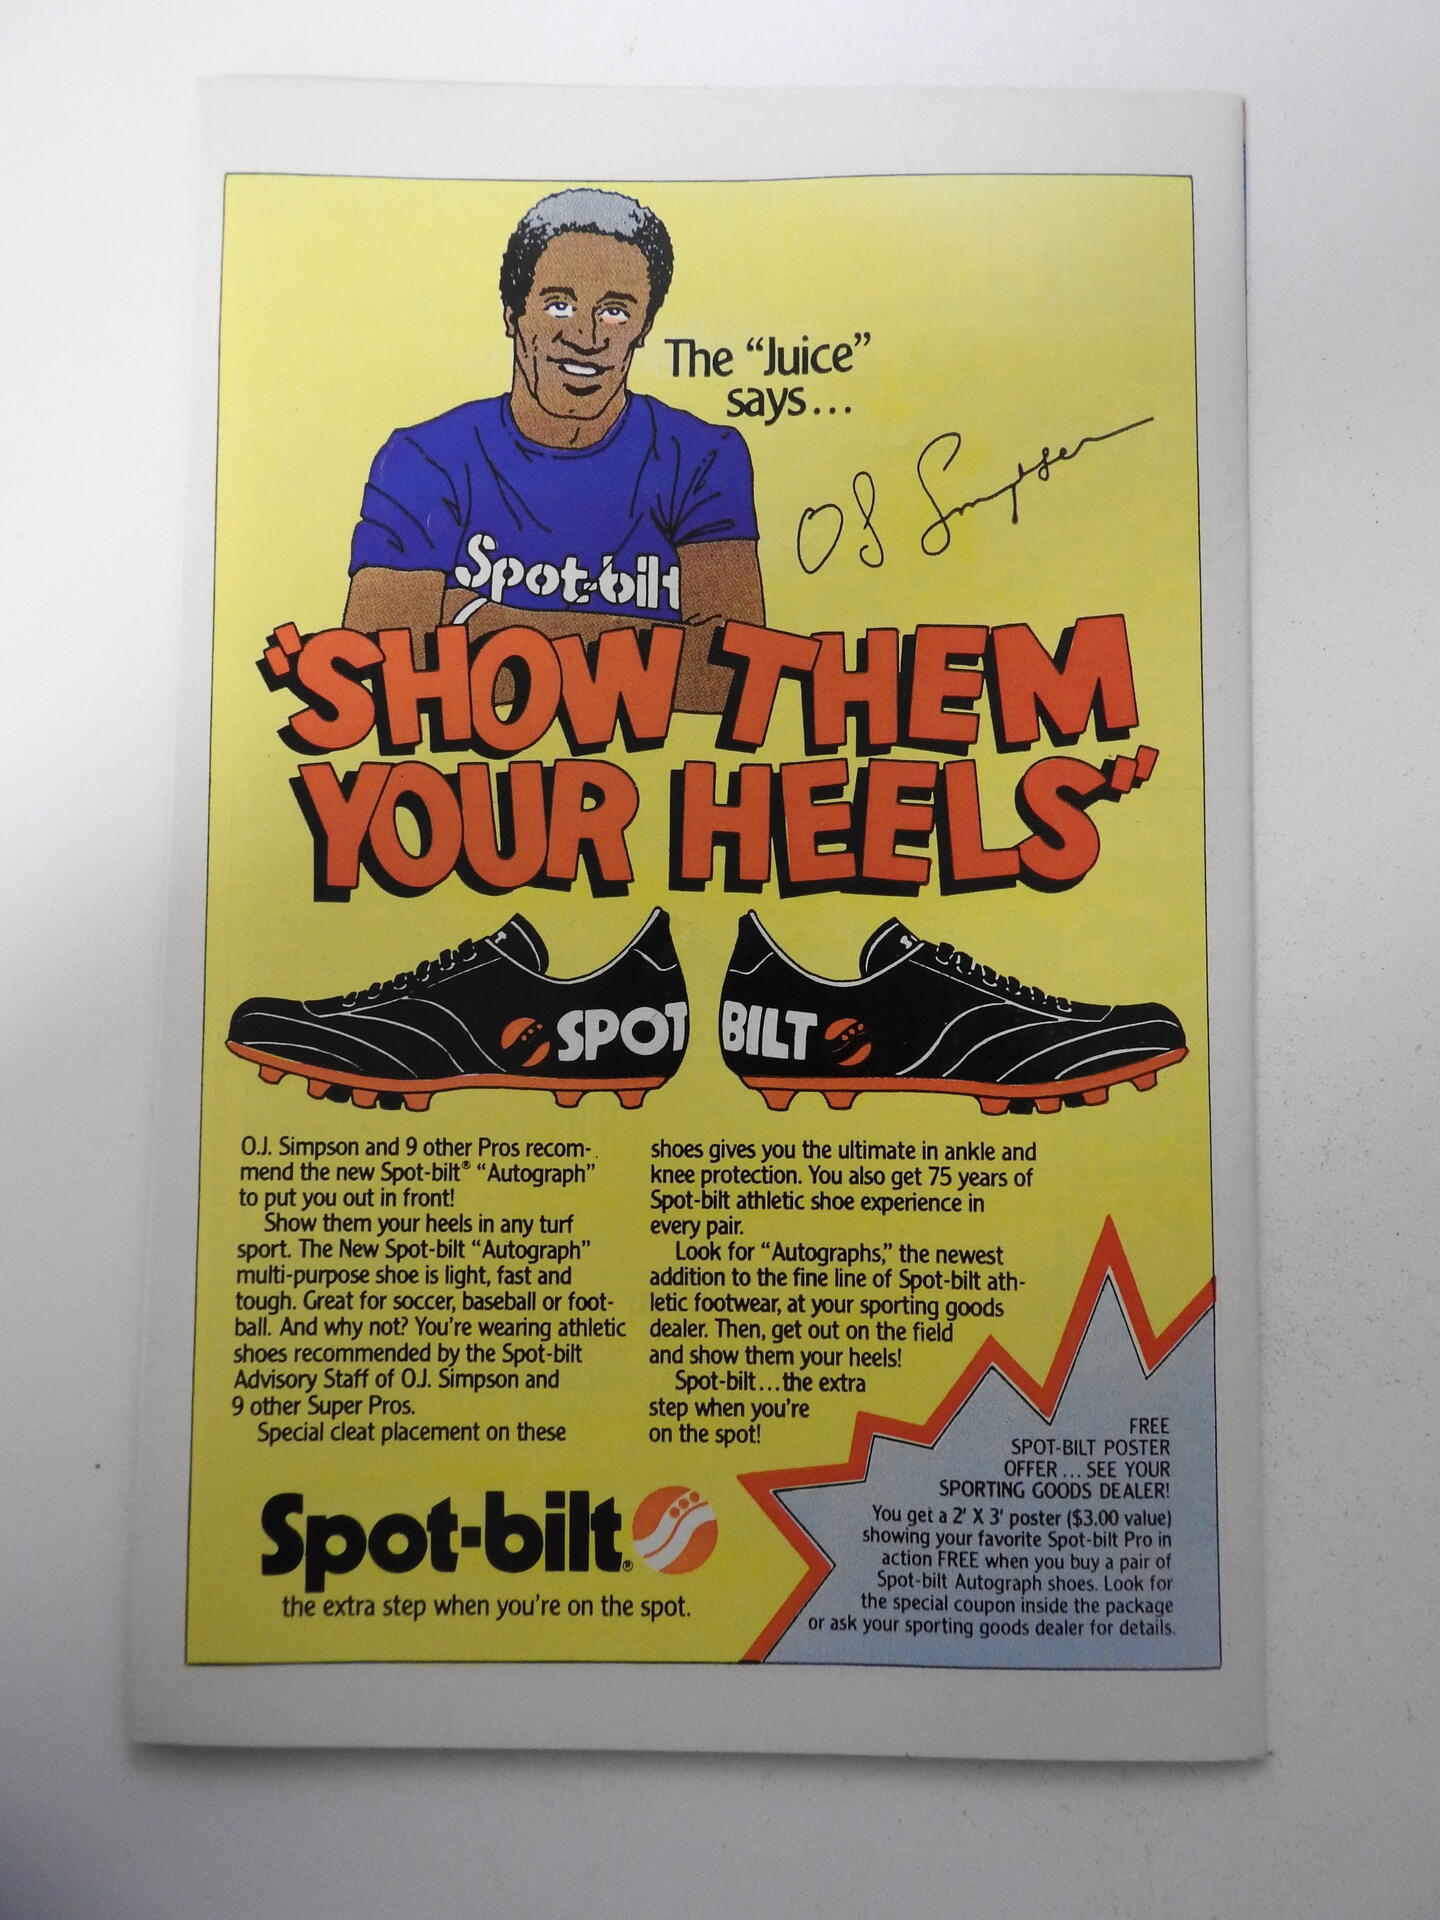 The “Juice”
says...
OJ Simpson
Spot-bilt
“SHOW THEM
YOUR HEELS”
SPOT BILT
O.J. Simpson and 9 other Pros recom-
mend the new Spot-bilt® “Autograph”
to put you out in front!
Show them your heels in any turf
sport. The New Spot-bilt “Autograph”
multi-purpose shoe is light, fast and
tough. Great for soccer, baseball or foot-
ball. And why not? You’re wearing athletic
shoes recommended by the Spot-bilt
Advisory Staff of O.J. Simpson and
9 other Super Pros.
Special cleat placement on these
shoes gives you the ultimate in ankle and
knee protection. You also get 75 years of
Spot-bilt athletic shoe experience in
every pair.
Look for “Autographs,” the newest
addition to the fine line of Spot-bilt ath-
letic footwear, at your sporting goods
dealer. Then, get out on the field
and show them your heels!
Spot-bilt...the extra
step when you’re
on the spot!
FREE
SPOT-BILT POSTER
OFFER... SEE YOUR
SPORTING GOODS DEALER!
You get a 2' X 3' poster ($3.00 value)
showing your favorite Spot-bilt Pro in
action FREE when you buy a pair of
Spot-bilt Autograph shoes. Look for
the special coupon inside the package
or ask your sporting goods dealer for details.
Spot-bilt®
the extra step when you’re on the spot.